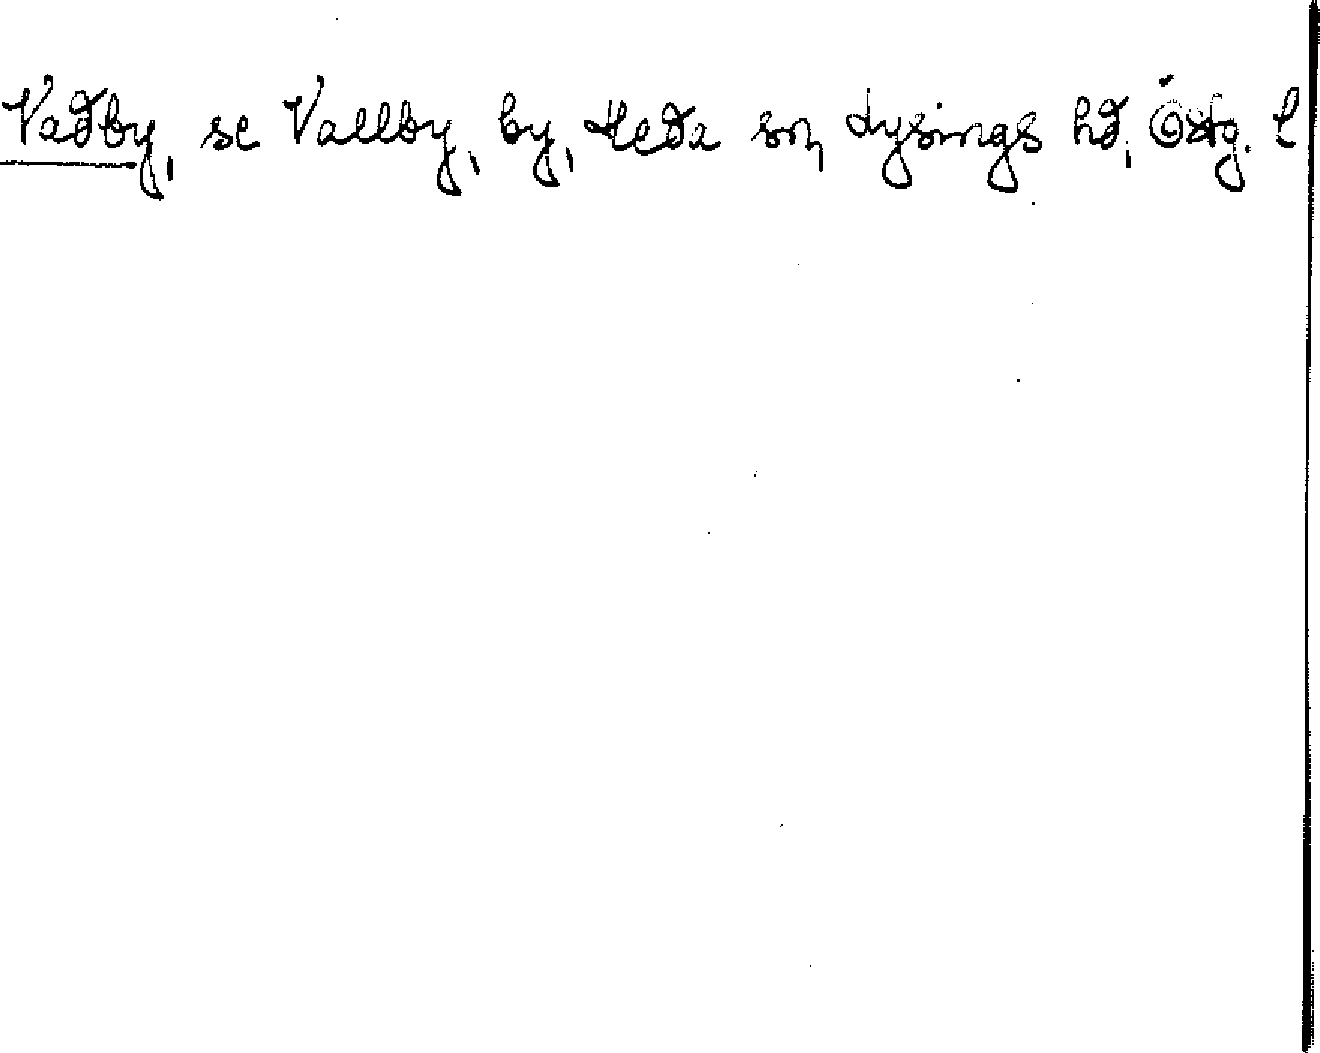 Vaðby, se Vallby, by, Heda sn, Lysings hd, Östg. l